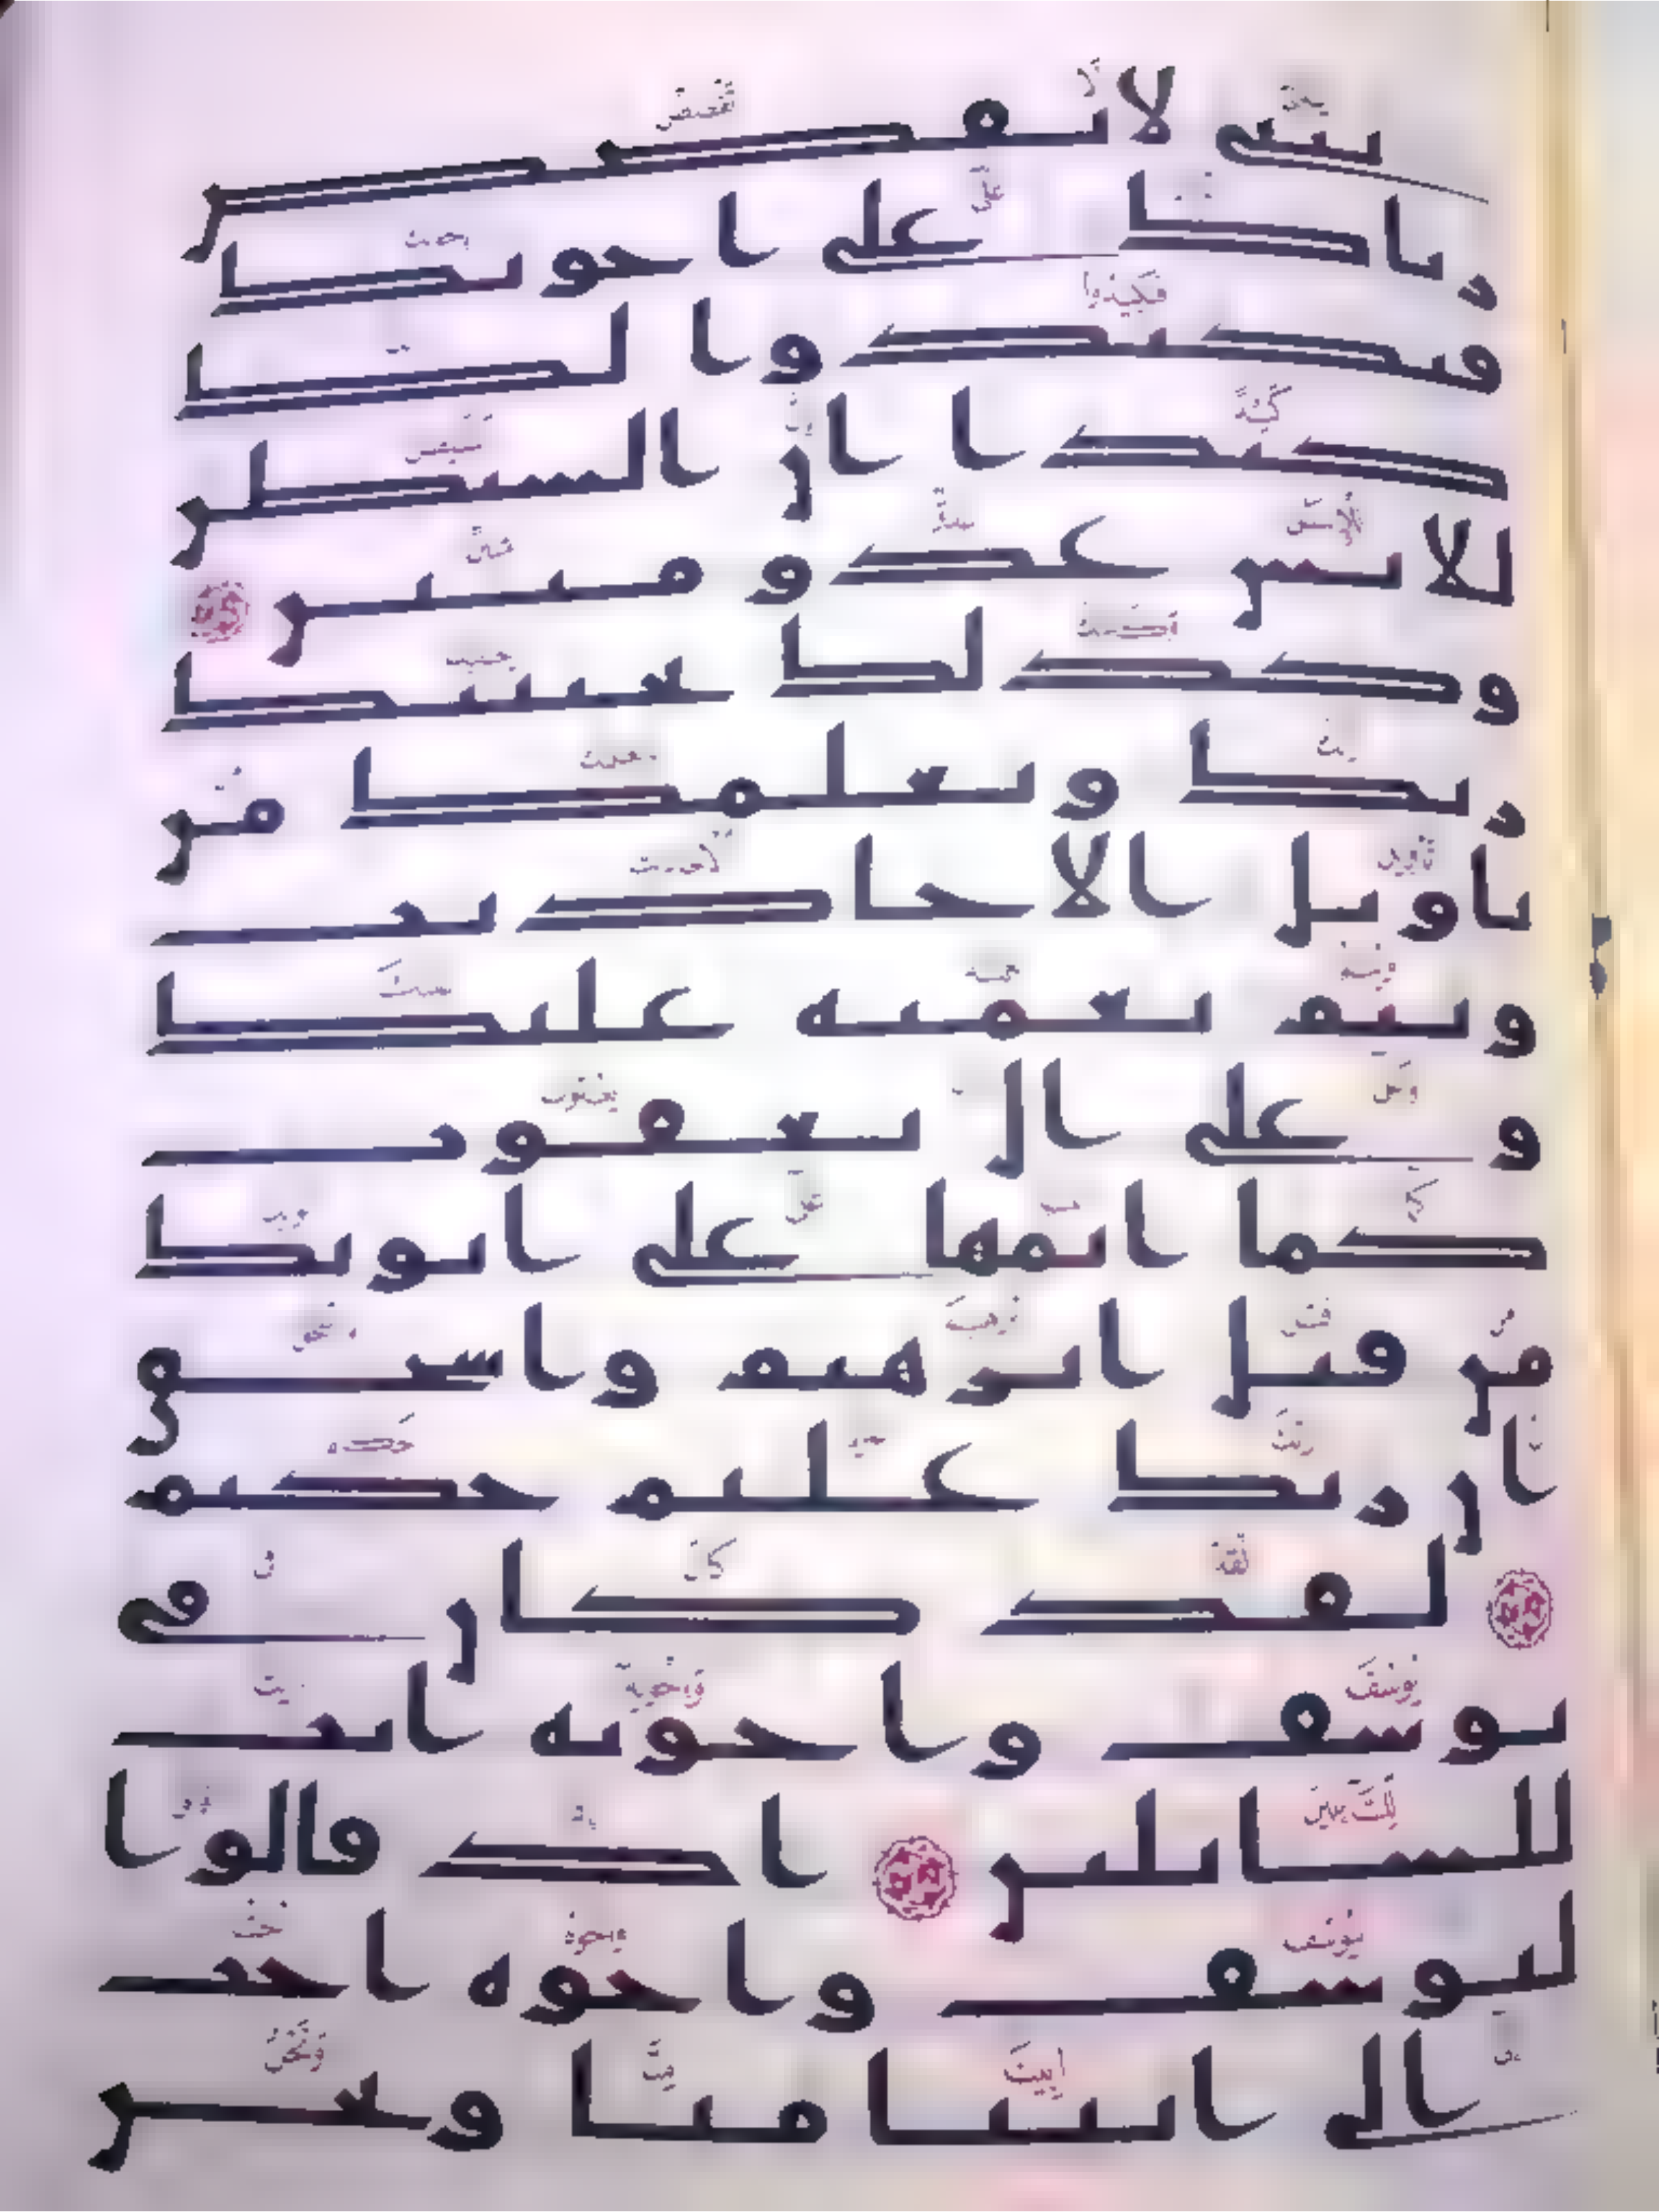 يبني لا تقصص
رياك على اخوتك
فيكيدوا لك
كيدا ان الشيطن
للانسن عدو مبين
وكذلك يجتبيك
ربك ويعلمك من
تاويل الاحاديث
ويتم نعمته عليك
وعلى ال يعقوب
كما اتمها على ابويك
من قبل ابرهيم واسحق
ان ربك عليم حكيم
لقد كان في
يوسف واخوته ايت
للسايلين اذ قالوا
ليوسف واخوه احب
الى ابينا منا ونحن